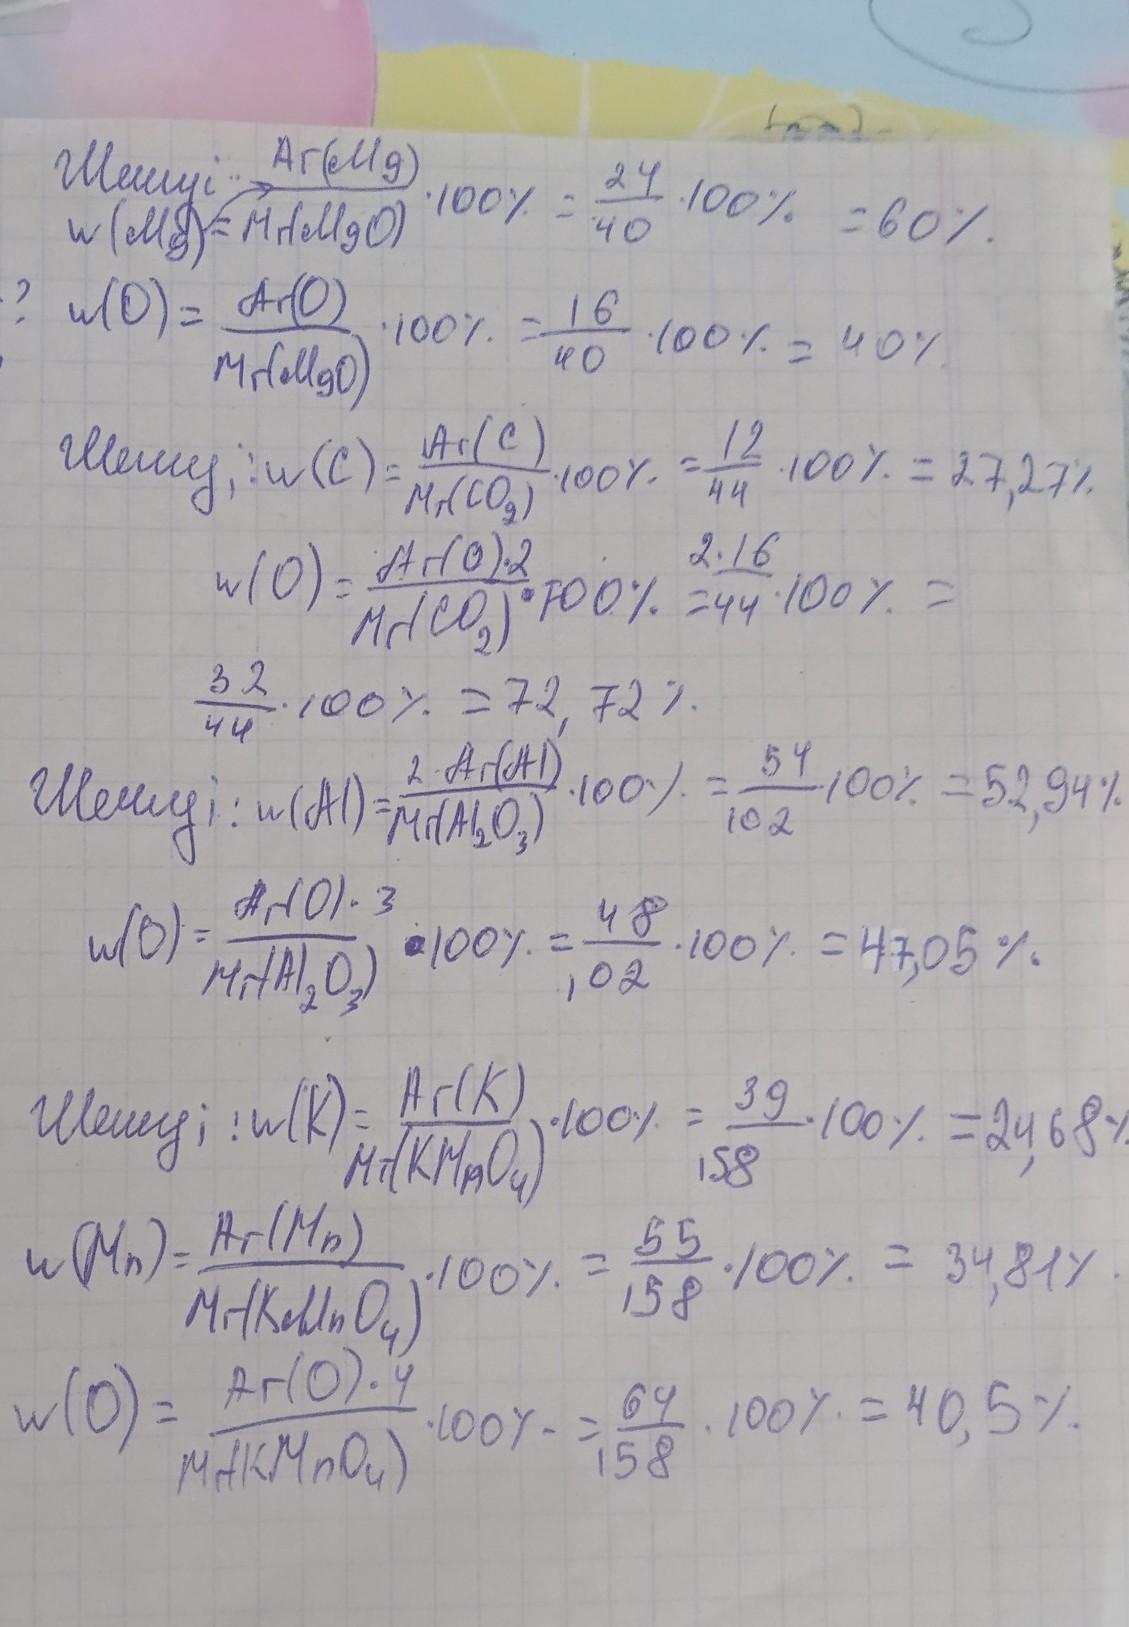 Шешуі:
w(Mg) = Ar(Mg)/Mr(MgO) · 100% = 24/40 · 100% = 60%.
? w(O) = Ar(O)/Mr(MgO) · 100% = 16/40 · 100% = 40%
Шешуі: w(C) = Ar(C)/Mr(CO₂) · 100% = 12/44 · 100% = 27,27%
w(O) = Ar(O)·2/Mr(CO₂) · 100% = 2·16/44 · 100% =
32/44 · 100% = 72,72%.
Шешуі: w(Al) = 2·Ar(Al)/Mr(Al₂O₃) · 100% = 54/102 · 100% = 52,94%
w(O) = Ar(O)·3/Mr(Al₂O₃) · 100% = 48/102 · 100% = 47,05%.
Шешуі: w(K) = Ar(K)/Mr(KMnO₄) · 100% = 39/158 · 100% = 24,68%
w(Mn) = Ar(Mn)/Mr(KMnO₄) · 100% = 55/158 · 100% = 34,81%.
w(O) = Ar(O)·4/Mr(KMnO₄) · 100% = 64/158 · 100% = 40,5%.